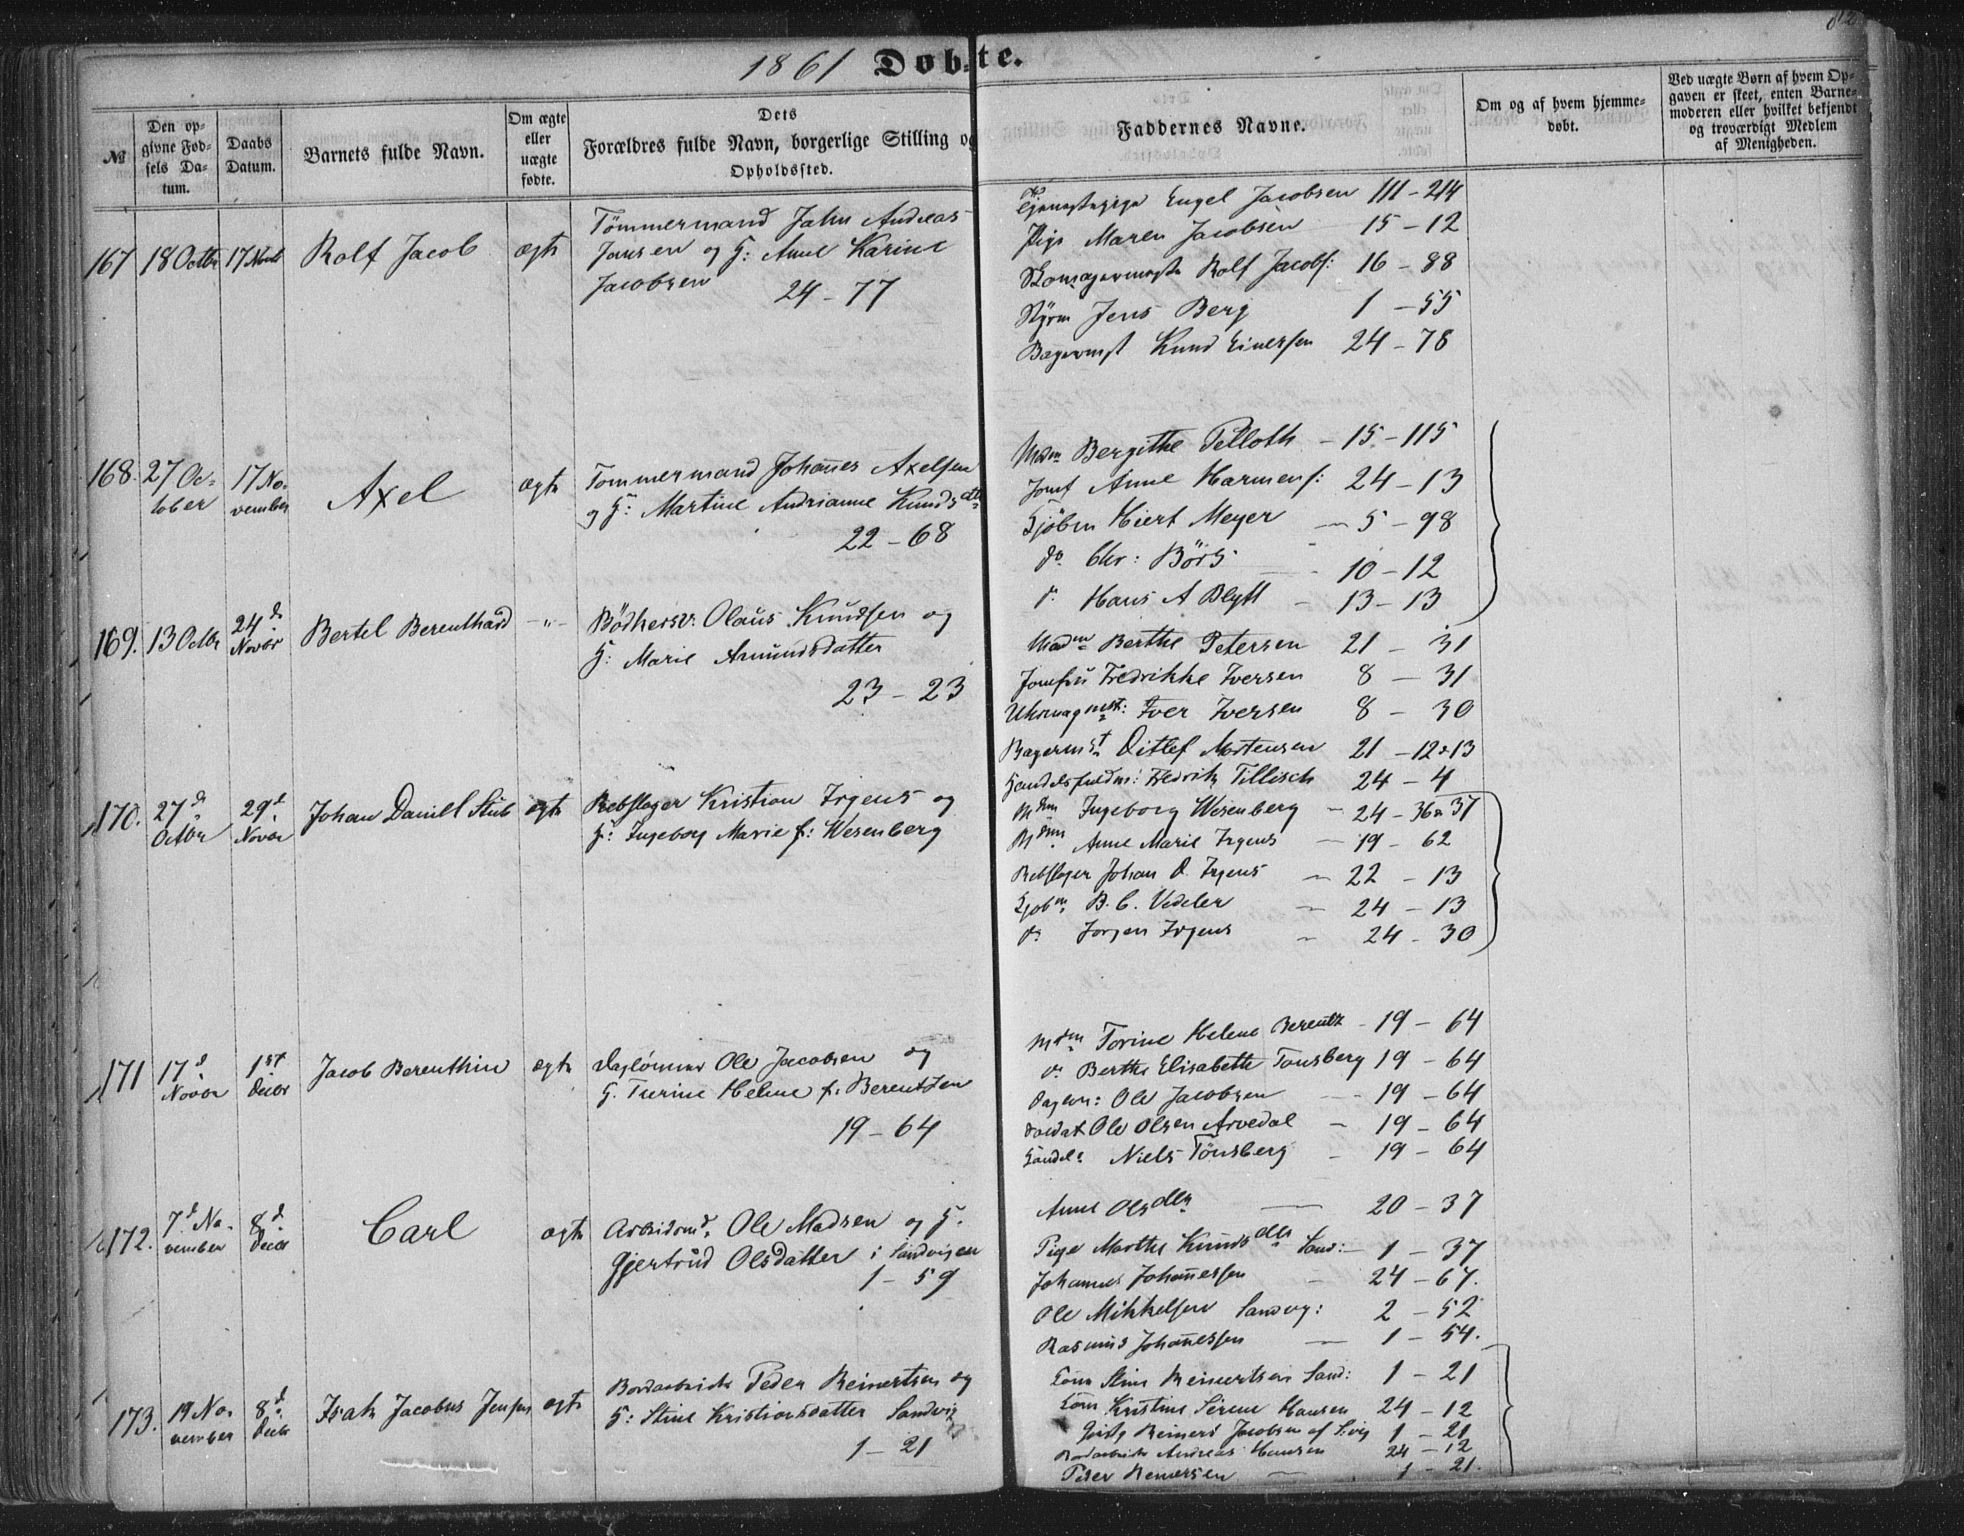 82
1861 Døbte.
№
Den opgivne Fødsels Datum.
Daabs Datum.
Barnets fulde Navn.
Om ægte eller uægte fødte.
Dets Forældres fulde Navn, borgerlige Stilling og Opholdssted.
Faddernes Navne.
Om og af hvem hjemmedøbt.
Ved uægte Børn af hvem Opgaven er skeet, enten Barnemoderen eller hvilket bekjendt og troværdigt Medlem af Menigheden.
167 18 Octbr 17 Novb Rolf Jacob ægte
Tömmermand Jahn Andreas
Jansen og H: Anne Karine
Jacobsen 24 - 77
Engel Jacobsen 111 - 214
Pige Maren Jacobsen 15 - 12
Rolf Jacobs: 16 - 88
Styrm Jens Berg 1 - 55
Bagermst Knud Einersen 24 - 78
168. 27 October 17 November Axel ægte
Tömmermand Johannes Axelsen
og H: Martine Andrianne Knudsdtr
22 - 68
Madm Bergithe Pelloth - 15 - 115
Jomf Anne Harmens: 24 - 13
Kjøbm Hiert Meyer - 5 - 98
do Chr: Börs 10 - 12
do Hans A Blytt - 13 - 13
169. 13 Octbr 24d Novbr Bertel Berenthard -"-
Bödkersv: Olaus Knudsen og
H: Marie Amundsdatter
23 - 23
Madm Berthe Petersen 21 - 31
Jomfru Fredrikke Iversen 8 - 31
Uhrmagmst: Iver Iversen 8 - 30
Bagermst Ditlef Mortensen 21 - 12&13
Handelsfuldm: Fredrik Tillisch 24 - 4
170. 27d Octbr 29d Novbr Johan Daniel Stub ægte
Rebslager Kristian Irgens og
H: Ingeborg Marie f: Wesenberg
Mdm Ingeborg Wesenberg - 24 - 36&37
Mdm Anne Marie Irgens - 19 - 62
Rebslager Johan D. Irgens - 22 - 13
Kjøbm B. C. Vedeler - 24 - 13
do Jørgen Irgens - 24 - 30
171 17d Novbr 1st Decbr Jacob Berenthin ægte
Daglönner Ole Jacobsen og
H. Turine Helene f. Berentzen
19 - 64
Mdm Torine Helene Berentz - 19 - 64
do Berthe Elisabeth Tonsberg 19 - 64
Ole Jacobsen - 19 - 64
Soldat Ole Olsen Arvedal - 19 - 64
Niels Tönsberg - 19 - 64
172. 7d November 8d Decbr Carl ægte
Arbeidsmd. Ole Madsen og H.
Gjertrud Olsdatter i Sandvigen
1 - 59
Anne Olsdtr - 20 - 37
Pige Marthe Knudsdtr Sand: - 1 - 37
Johannes Johannessen - 24 - 67.
Ole Mikkelsen Sandvg: 2 - 52
Rasmus Johannessen - 1 - 54.
173. 19 November 8d Decbr Isak Jacobus Jensen ægte
Peder Reinertsen og
H: Stine Kristiansdatter Sandvig
1 - 21
Stine Reinertsen Sand: 1 - 21
Kristine Serene Hansen 24 - 12
Reinert Jacobsen af S:vig 1 - 21
Andreas Hansen 24 - 12
Peder Reinersen - 1 - 21.